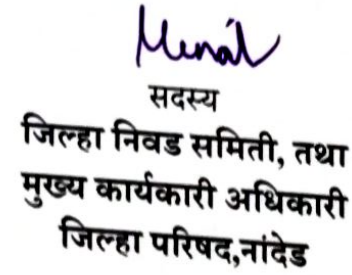 सदस्य
जिल्हा निवड समिती, तथा
मुख्य कार्यकारी अधिकारी
जिल्हा परिषद,नांदेड